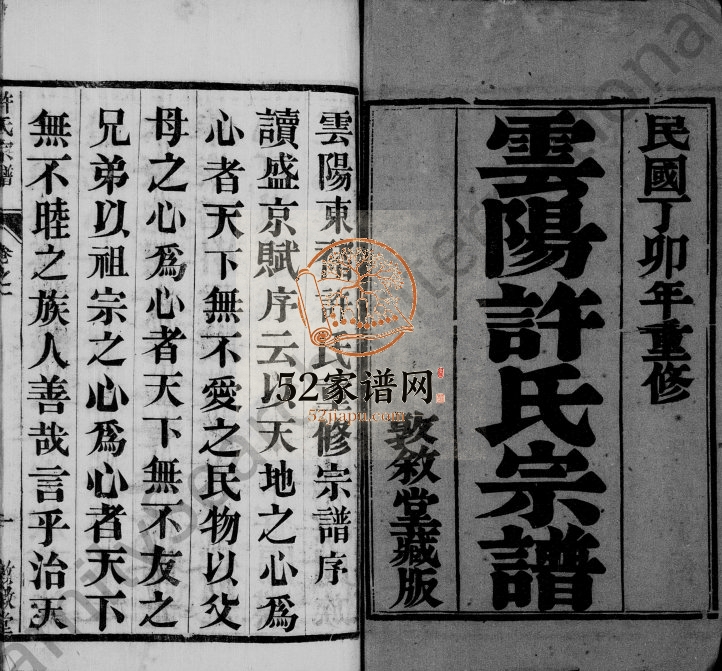 民國丁卯年重修
雲陽許氏宗譜
敦敘堂藏版
雲陽東許氏重修宗譜序
讀盛京賦序云以天地之心爲
心者天下無不愛之民物以父
母之心爲心者天下無不友之
兄弟以祖宗之心爲心者天下
無不睦之族人善哉言乎治天
許氏宗譜
卷之
一
敦敘堂
52家谱网
52jiapu.com